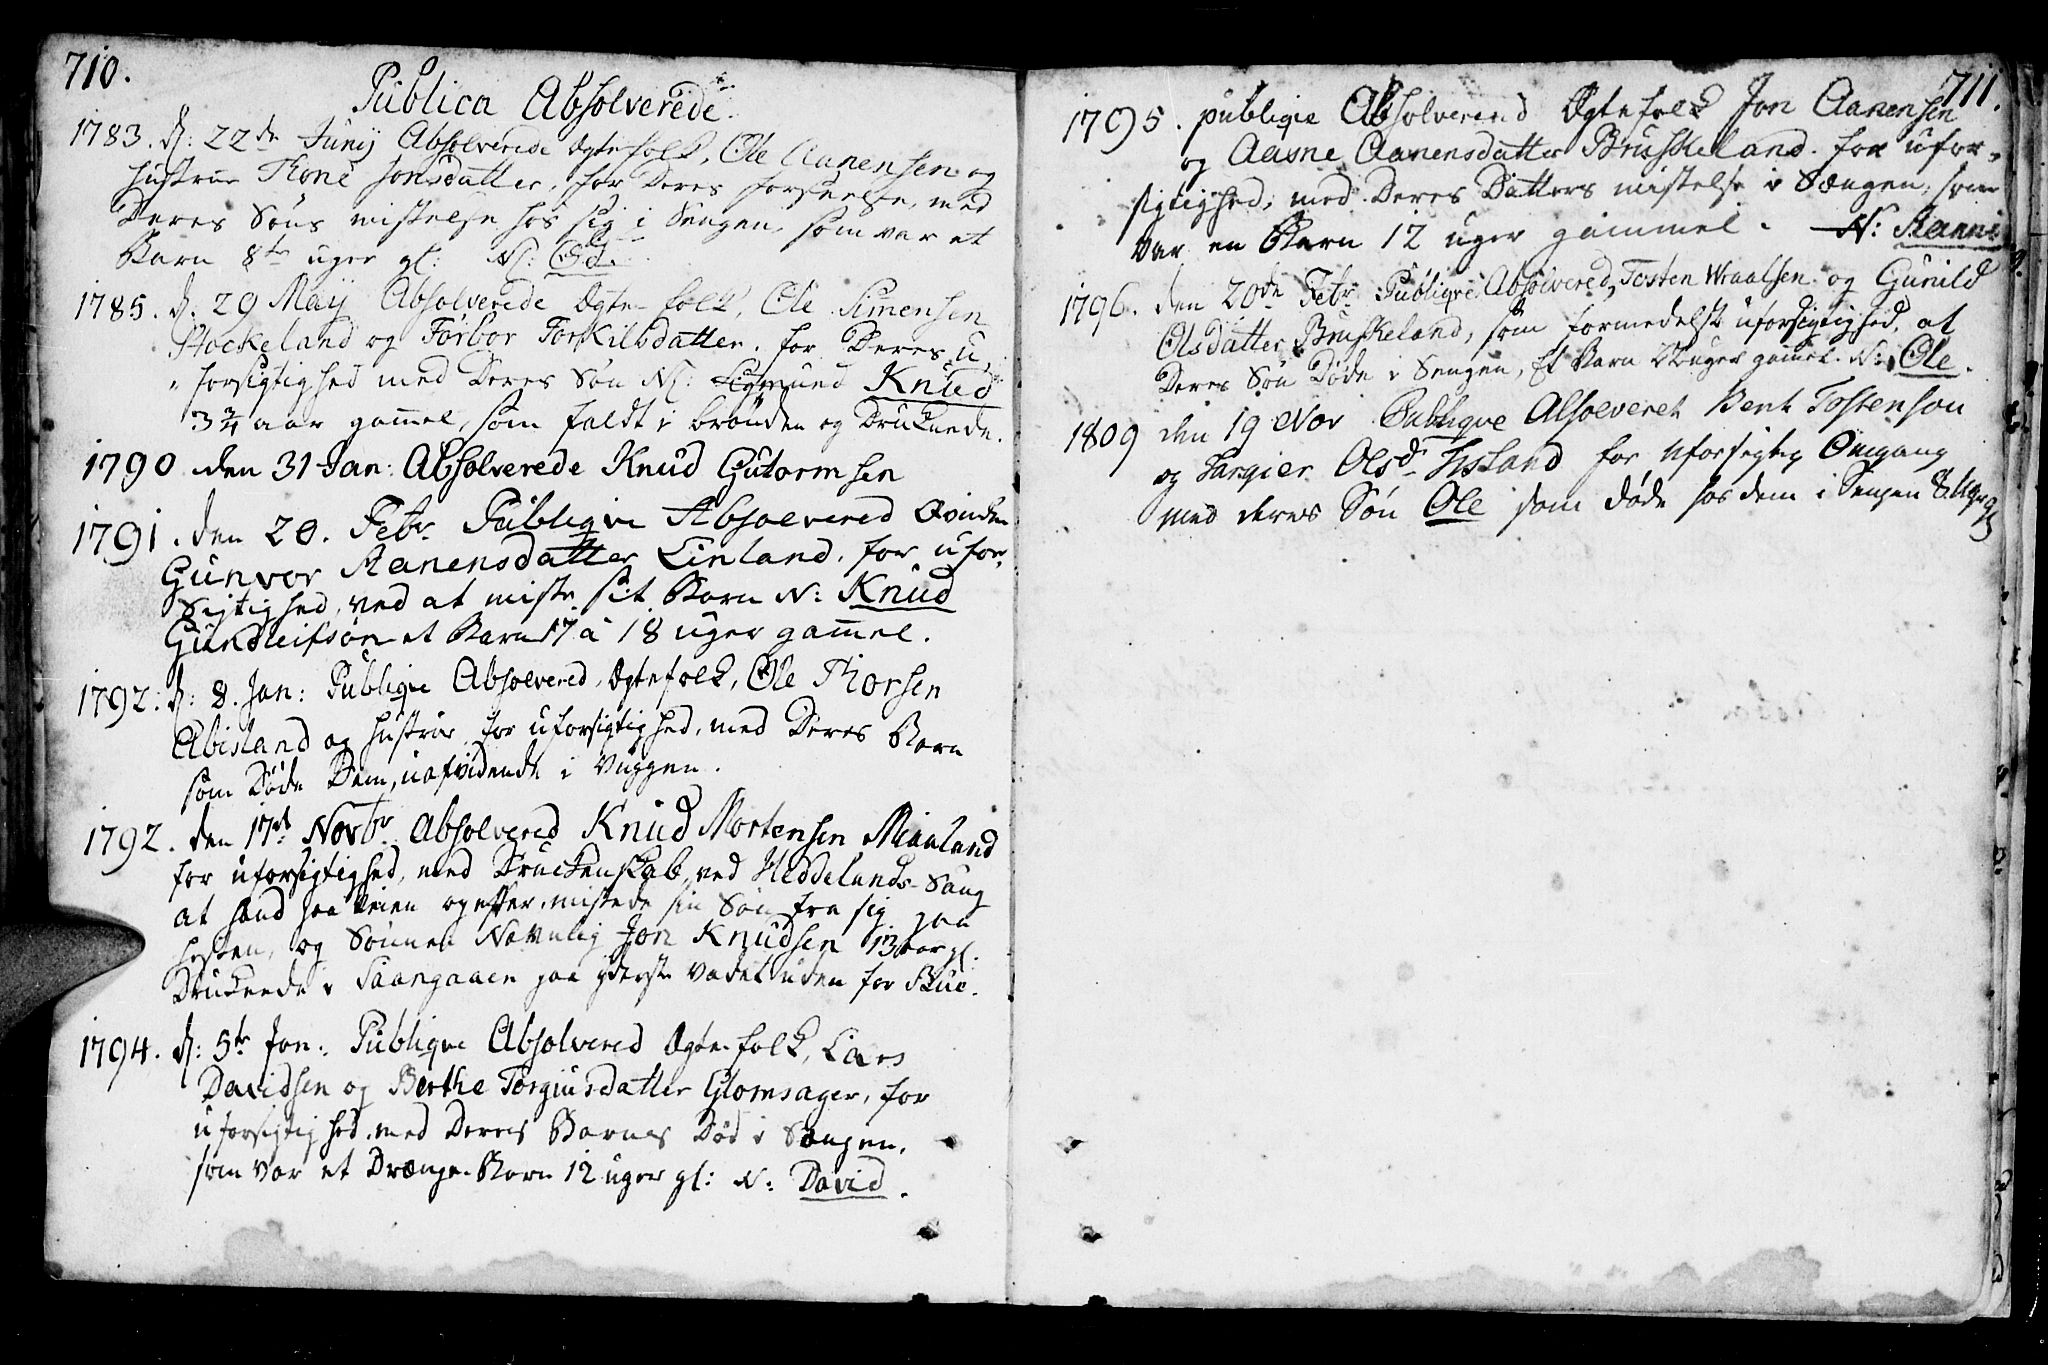 710.
Publica Absolverede
1783. d: 22de Junij Absolverede Ægtefolk, Ole Aanensen og
Hustrue Thone Jonsdatter, for Deres forseelse, med
Deres Søns mistelse hos sig i Sengen, som var et
Barn 8te uger gl: N:
1785. d. 29 Maij Absolverede Ægte-folk, Ole Simensen
Stockeland og Torbor Torkilsdatter. for Deres u,
forsigtighed med Deres Søn N: Knud
3 3/4 aar gammel, som faldt i brønden og Druknede.
1790 den 31 Jan: Absolverede Knud Gutormsen
1791. den 20. Febr. Publiqve Absolvered Qvinden
Gunvor Aanensdatter Linland, for ufor-
sigtighed, ved at miste sit Barn N: Knud
Gundleifsøn et Barn 17 a 18 uger gammel.
1792: d: 8. Jan: Publiqve Absolvered, Ægtefolk, Ole Thorsen
Abisland og Hustrue for uforsigtighed, med Deres Barn
som Døde Dem, uafvidende i Vuggen.
1792. den 17de Novbr Absolvered Knud Mortensen
for uforsigtighed, med Druckenskab, ved Heddelands-Saug
at hand paa Veien opefter mistede sin Søn fra sig paa
Hesten, og Sønnen Navnlig Jon Knudsen 13 aar gl.
Druknede i paa yderste Vadet uden for
1794. d: 5te Jan: Publiqve Absolvered Ægte-folk, Lars
Davidsen og Berthe Torgiusdatter Glomsager, for
uforsigtighed med Deres Barnes Død i Sængen,
som var et Drænge-Barn 12 uger gl: N: David.
711.
1795. publiqve Absolverend Ægtefolk Jon Aanensen
og Aasne Aanensdatter Bruskeland. for ufor-
sigtighed, med Deres Datters mistelse i Sængen, som
var en Barn 12 uger gammel. N: Aanni
1796. den 20de Febr Publiqve Absolvered, Tosten Wraalsen og Gunild
Olsdatter Bruskeland, som formedelst uforsigtighed, at
Deres Søn Døde i Sengen, Et Barn uger gammel. N: Ole.
1809 den 19 Nov Publiqve Absolveret Bent Tostenson
og Olsd. for Uforsigtig Omgang
med deres Søn Ole som døde hos dem i Sengen 8 Uger gl